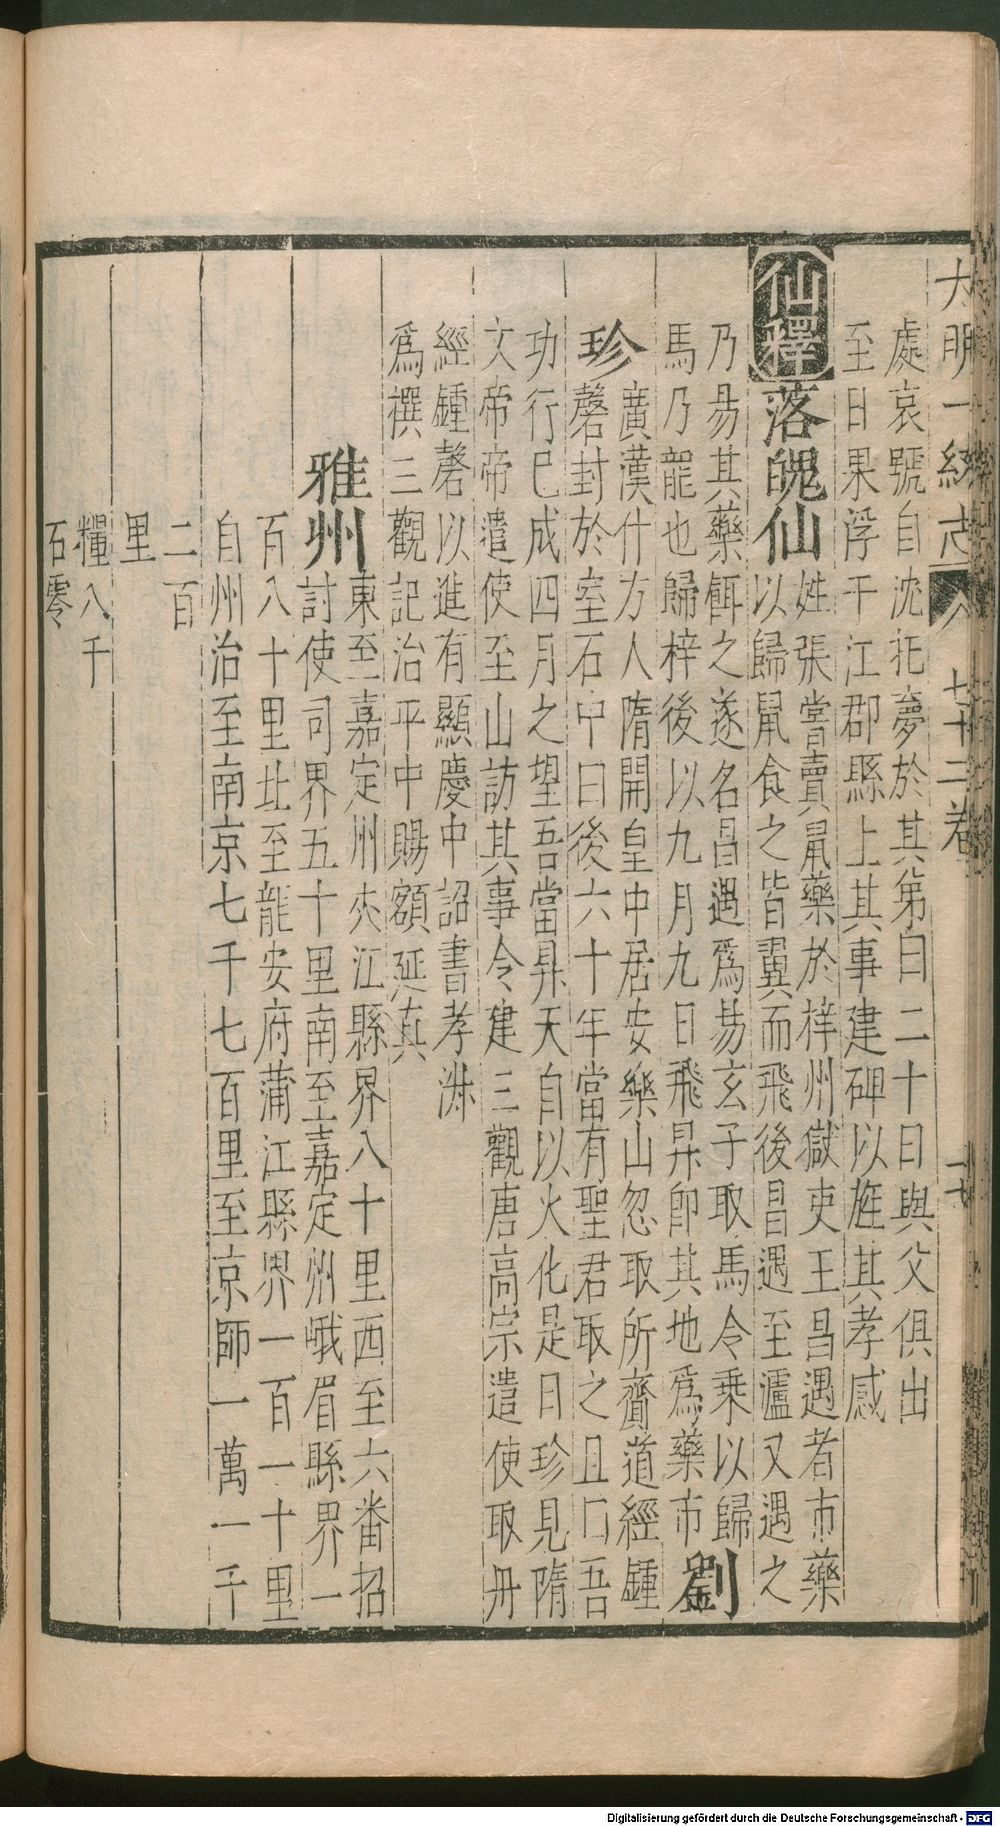 大明一統志 七十二卷
處哀號自沈托夢於其弟曰二十日與父俱出
至日果浮于江郡縣上其事建碑以旌其孝感
仙釋 落魄仙 姓張嘗賣鼠藥於梓州獄吏王昌遇者市藥
以歸鼠食之皆翼而飛後昌遇至瀘又遇之
乃昜其藥餌之遂名昌遇爲昜玄子取馬令乗以歸
馬乃龍也歸梓後以九月九日飛昇即其地爲藥市 劉
珍 廣漢什方人隋開皇中居安樂山忽取所齎道經鍾
磬封於室石中曰後六十年當有聖君取之且曰吾
功行已成四月之望吾當昇天自以火化是日珍見隋
文帝帝遣使至山訪其事令建三觀唐高宗遣使取丹
經鍾磬以進有顯慶中詔書孝洙
爲撰三觀記治平中賜額延真
雅州 東至嘉定州夾江縣界八十里西至六番招
討使司界五十里南至嘉定州峨眉縣界一
百八十里北至龍安府蒲江縣界一百一十里
自州治至南京七千七百里至京師一萬一千
二百
里
糧八千
石零
Digitalisierung gefördert durch die Deutsche Forschungsgemeinschaft - DFG